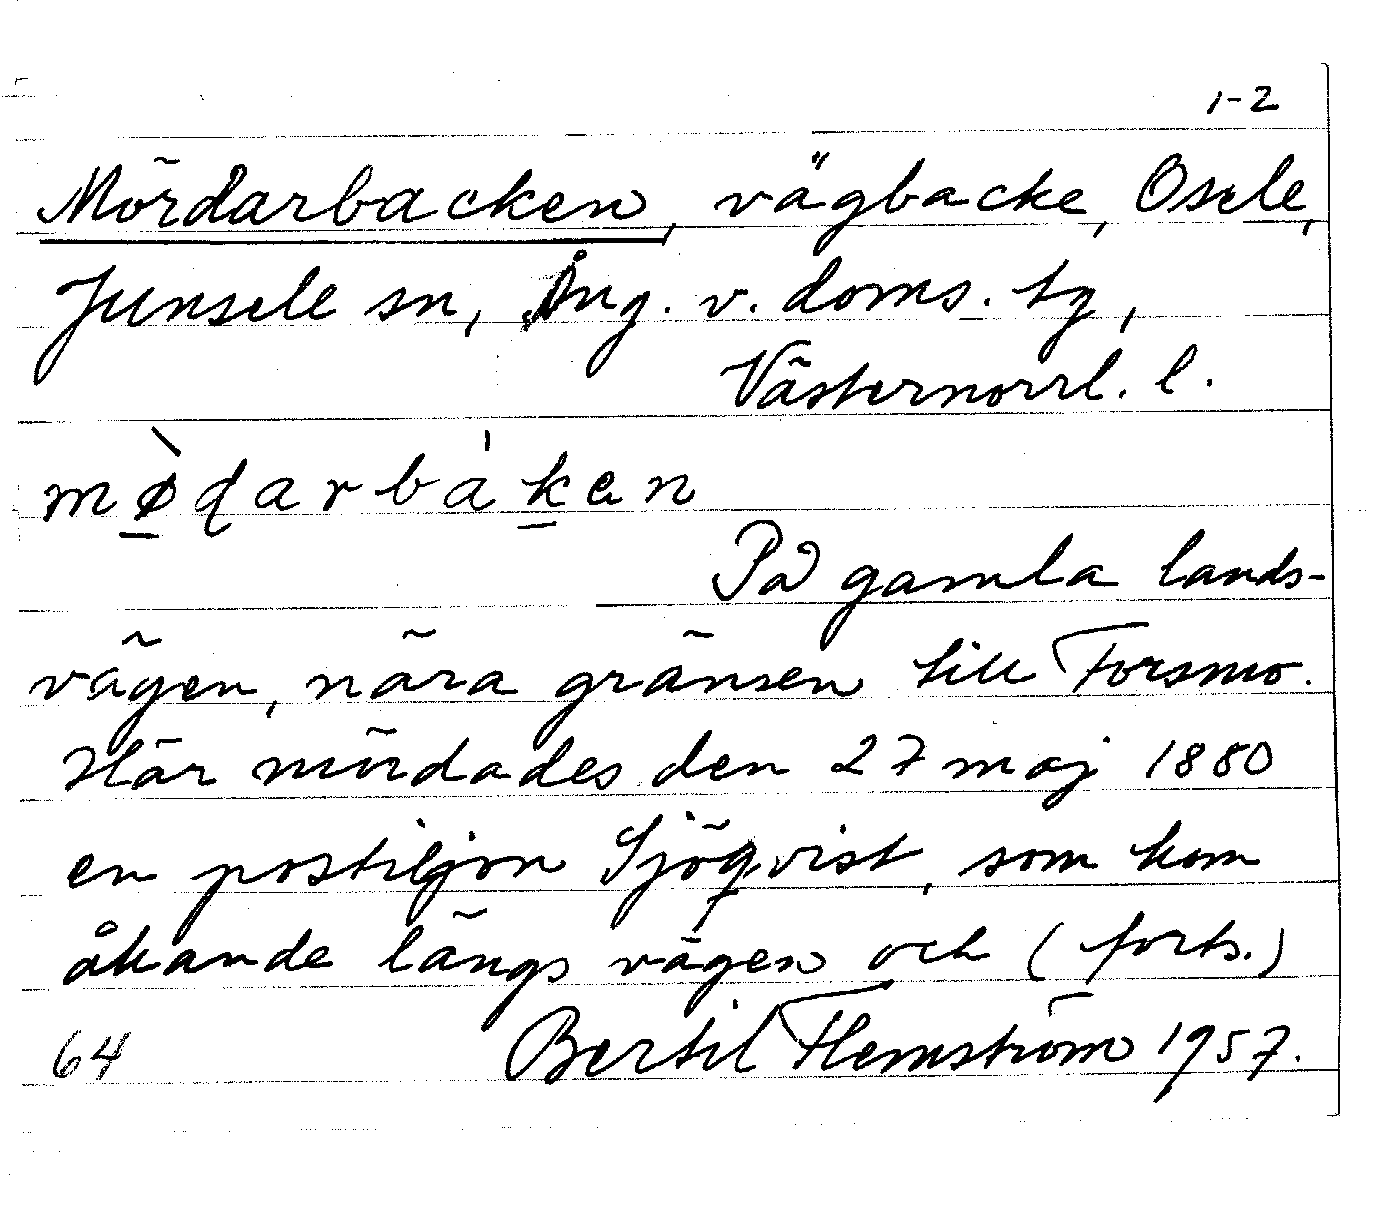 1-2
Mördarbacken, vägbacke, Osele,
Junsele sn, Ång. v. doms. tg,
Västernorrl. l.
mø̀ɖarbàken
På gamla lands-
vägen, nära gränsen till Forsmo.
Här mördades den 27 maj 1880
en postiljon Sjöqvist, som kom
åkande längs vägen och (forts.)
64 Bertil Flemström 1957.